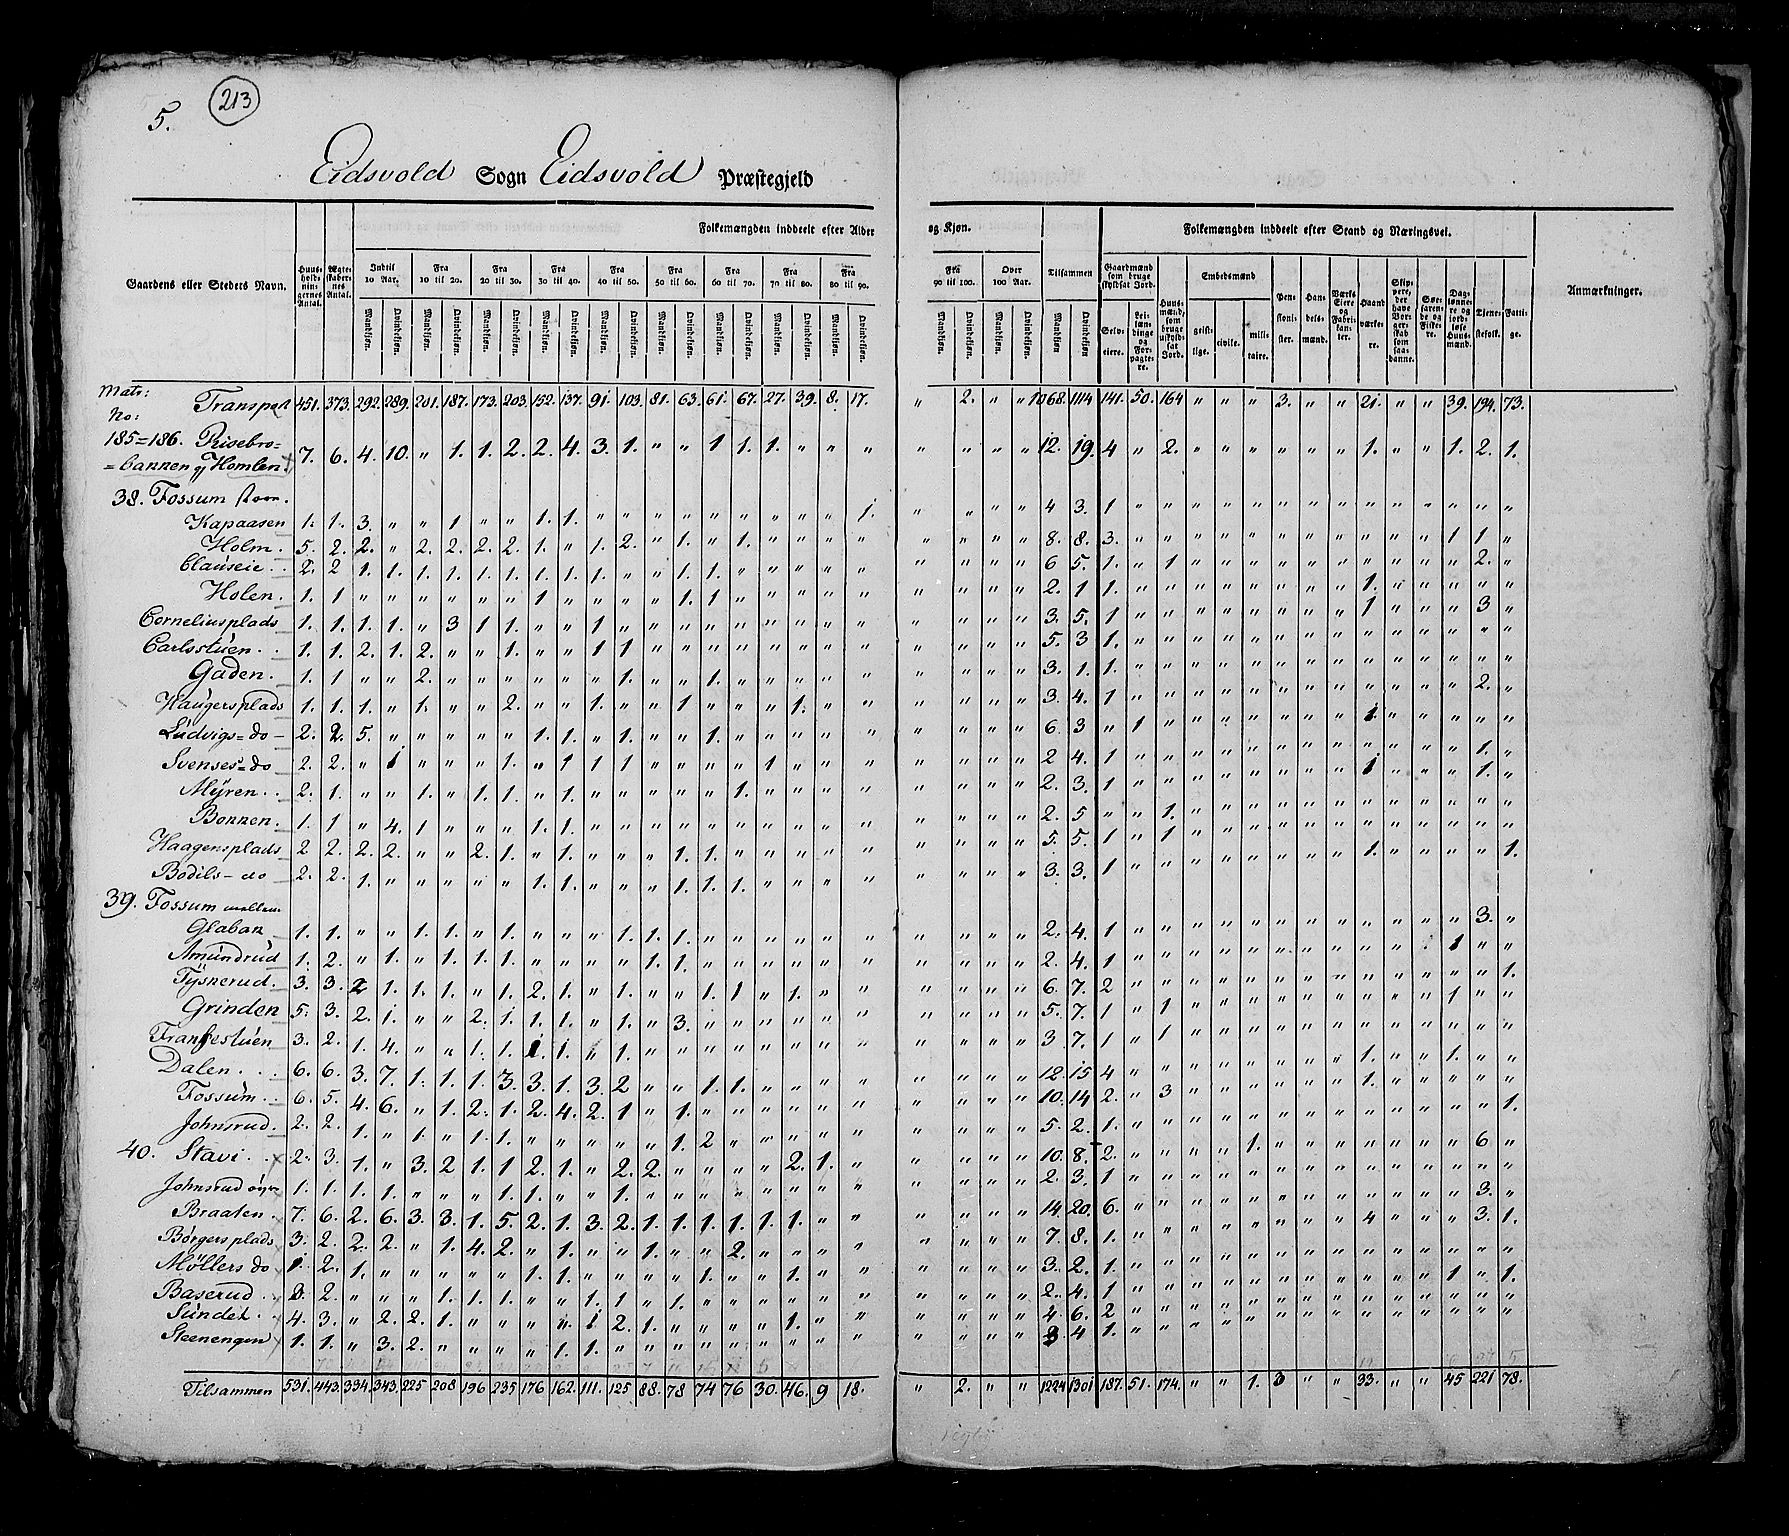 5. 213
Eidsvold Sogn Eidsvold Præstegjeld
Gaardens eller Steders Navn. Huusholdningernes Antal. Ægteskabernes Antal. Folkemængden inddeelt efter Alder og Kjøn. Folkemængden inddeelt efter Stand og Næringsvei. Anmærkninger.
Indtil 10 Aar. Fra 10 til 20. Fra 20 til 30. Fra 30 til 40. Fra 40 til 50. Fra 50 til 60. Fra 60 til 70. Fra 70 til 80. Fra 80 til 90. Fra 90 til 100. Over 100 Aar. Tilsammen
Mandkjøn. Qvindekjøn.
Matr: No: Transport 451. 373. 292. 289. 201. 187. 173. 203. 152. 137. 91. 103. 81. 63. 61. 67. 27. 39. 8. 17. " 2. " " 1068. 1114 141. 50. 164 " " " 3. " " 21. " " 39. 194. 73.
185=186. Risebro=
=bannen og Homlen 7. 6. 4. 10. " 1. 1. 2. 2. 4. 3. 1. " " 1 1. 1. " " " " " " " 12. 19. 4 " 2. " " " " " " 1. " " 1. 2. 1.
38. Fossum stoer.
Kapaasen 1. 1. 3. " " 1 " " 1. 1. " " " " " " " " " 1. " " " " 4 3. 1 " " " " " " " " " " " " " "
Holm. 5. 2. 2. " 2. 2. 2. 2. 1. " 1. 2. " 1. " 1. " " " " " " " " 8. 8. 3. " " " " " " " " " " " 1 1. "
Clauseie 2. 2 1. 1. 1. 1. 1. 1. 1. 1. 1. " " 1. 1. " " " " " " " " " 6 5. 1. " 1 " " " " " " " " " " 2. "
Holen. 1. 1 " " " " " " 1 " " " " 1. 1 " " " " " " " " " 2. 1 1. " " " " " " " " 1. " " " " "
Corneliusplads 1. 1. 1. 1. " 3 1 1. " " 1 " " " " " " " " " " " " " 3. 5. 1 " " " " " " " " 1 " " " 3 "
Carlsstuen 1. 1. 2. 1. 2. " " 1. " " 1 1 " " " " " " " " " " " " 5. 3 1. " " " " " " " " " " " " " "
Gaden. 1. 1 " " 2. " " " " " " 1. " " 1. " " " " " " " " " 3. 1. 1. " " " " " " " " " " " " " "
Haugersplads 1. 1. 1. " 1. " " 2. " " 1. " " 1 " " " 1. " " " " " " 3. 4. 1 " " " " " " " " " " " " 2. "
Ludvigs=do 2. 2. 5. " " " " " 1. 1. " 1. " " 1. " " " " " " " " " 6. 3 " 1 " " " " " " " 1. " " " " "
Svenses=do 2. 2. " 1 " " " 1. " 1 1 1 " " " " 1 " " " " " " " 2 4. 1. " " " " " " " " " " " " 1. "
Myren. 2. 1. " " 1. " 1. 1. " 1. " " " " " 1. " " " " " " " " 2. 3. 1 " " " " " " " " 1 " " " 1. "
Bonnen. 1. 1 " 4. 1 " " " 1. 1. " " " " " " " " " " " " " " 2. 5 " " 1. " " " " " " " " " " " "
Haagensplads 2 2. 2. 2. " " 2. 1. " 1. " " " 1. 1. " " " " " " " " " 5. 5. 1 " 1 " " " " " " " " " " " "
Bodils-do 2. 2. 1. " " " " " 1. 1. " " " 1. 1. 1. " " " " " " " " 3. 3. 1 " " " " " " " " 1. " " " " 1.
39. Fossum mellem
Glabak 1. 1. " " 1. 1. " 1. " " " 1. 1. 1. " " " " " " " " " " 2. 4. 1 " " " " " " " " " " " " 3. "
Amundrud 1. 2. " 1. " 1. 1. 1. " " " " 1. 1. " " " " " " " " " " 2. 4. 1 " " " " " " " " " " " 1 " "
Tysnerud. 3. 3. 2 1. 1. 1. " 1. 2. 1. " 1. " " 1. 1 " 1. " " " " " " 6. 7. 2 " " " " " " " " " " " " " 1.
Grinden 5. 3. 2. 1. " " 2. 1. 1. 1. " 1. " 3. " " " " " " " " " " 5. 7. 1 " 1 " " " " " " " " " 1 " "
Fransestuen 3. 2. 1. 4. " " 1. 1. 1. 1. " 1. " " " " " " " " " " " " 3 7. 1 " 1 " " " " " " " " " " " "
Dalen 6. 6. 3. 7. 1. 1. 1. 3. 3. 1. 3. 2 " " 1. 1. " " " " " " " " 12. 15 4 " " " " " " " " 1. " " 1. " "
Fossum 6. 5. 4. 6. " 1. 2. 1. 2. 4. 2. 1 " 1. " " " " " " " " " " 10. 14 2. " 3 " " " " " " 1. " " " " "
Johnsrud. 2. 2. 1. " 1. " 1. 1. " " " " " 1. 2 " " " " " " " " " 5. 2. 1. " " " " " " " " " " " " " 1.
40. Stavi 2. 3. 1. " 3. 2 1. 1 2. 1. " 2. 2. " " " " 2. 1. " " " " " 10. 8. 2. " " " " 1. " " " " " " " 6 "
Johnsrud øvre 1. 1. 1. 1. " " " 1. 1. " " 1. " " " " " " " " " " " " 2. 3. 1 " " " " " " " " " " " " " "
Braaten. 7. 6. 2. 6. 3. 3. 1. 5. 2. 1. 3. 2. 1. 1. 1. 1. 1. 1. " " " " " " 14. 20. 6. " " " " " " " " " " " " 3. "
Børgersplads 3. 2. 2. 2. " 1. 4. 2. " 1. " " 1. " " 2. " " " " " " " " 7. 8. 1. " " " " " " " " 4 " " " 3. 1.
Møllers do 1. 2. 1. " " " " " 1. 1. " " " " 1. " " 1. " " " " " " 3. 2. 1. " " " " " " " " " " " " " "
Baserud 2. 2. " " " 1. 1. 1. " " 1. 1 " 1. " " " " " " " " " " 2. 4. 1 " " " " " " " " " " " 1 " 1.
Sundet 4. 3. " 2. 2. 1. " " " " 1 2. 1. " " " " 1. " " " " " " 4. 6. 2 " " " " " " " " " " " " " "
Steenengen 1. 1. " 3. 2. " " " " 1. 1. " " " " " " " " " " " " " 3 4 1. " " " " " " " " " " " " " "
Tilsammen 531. 443. 334. 343. 225 208 196 235 176 162. 111. 125 88. 78 74 76 30. 46. 9 18. " 2. " " 1224 1301 187. 51. 174. " " 1. 3 " " 33. " " 45 221 78.